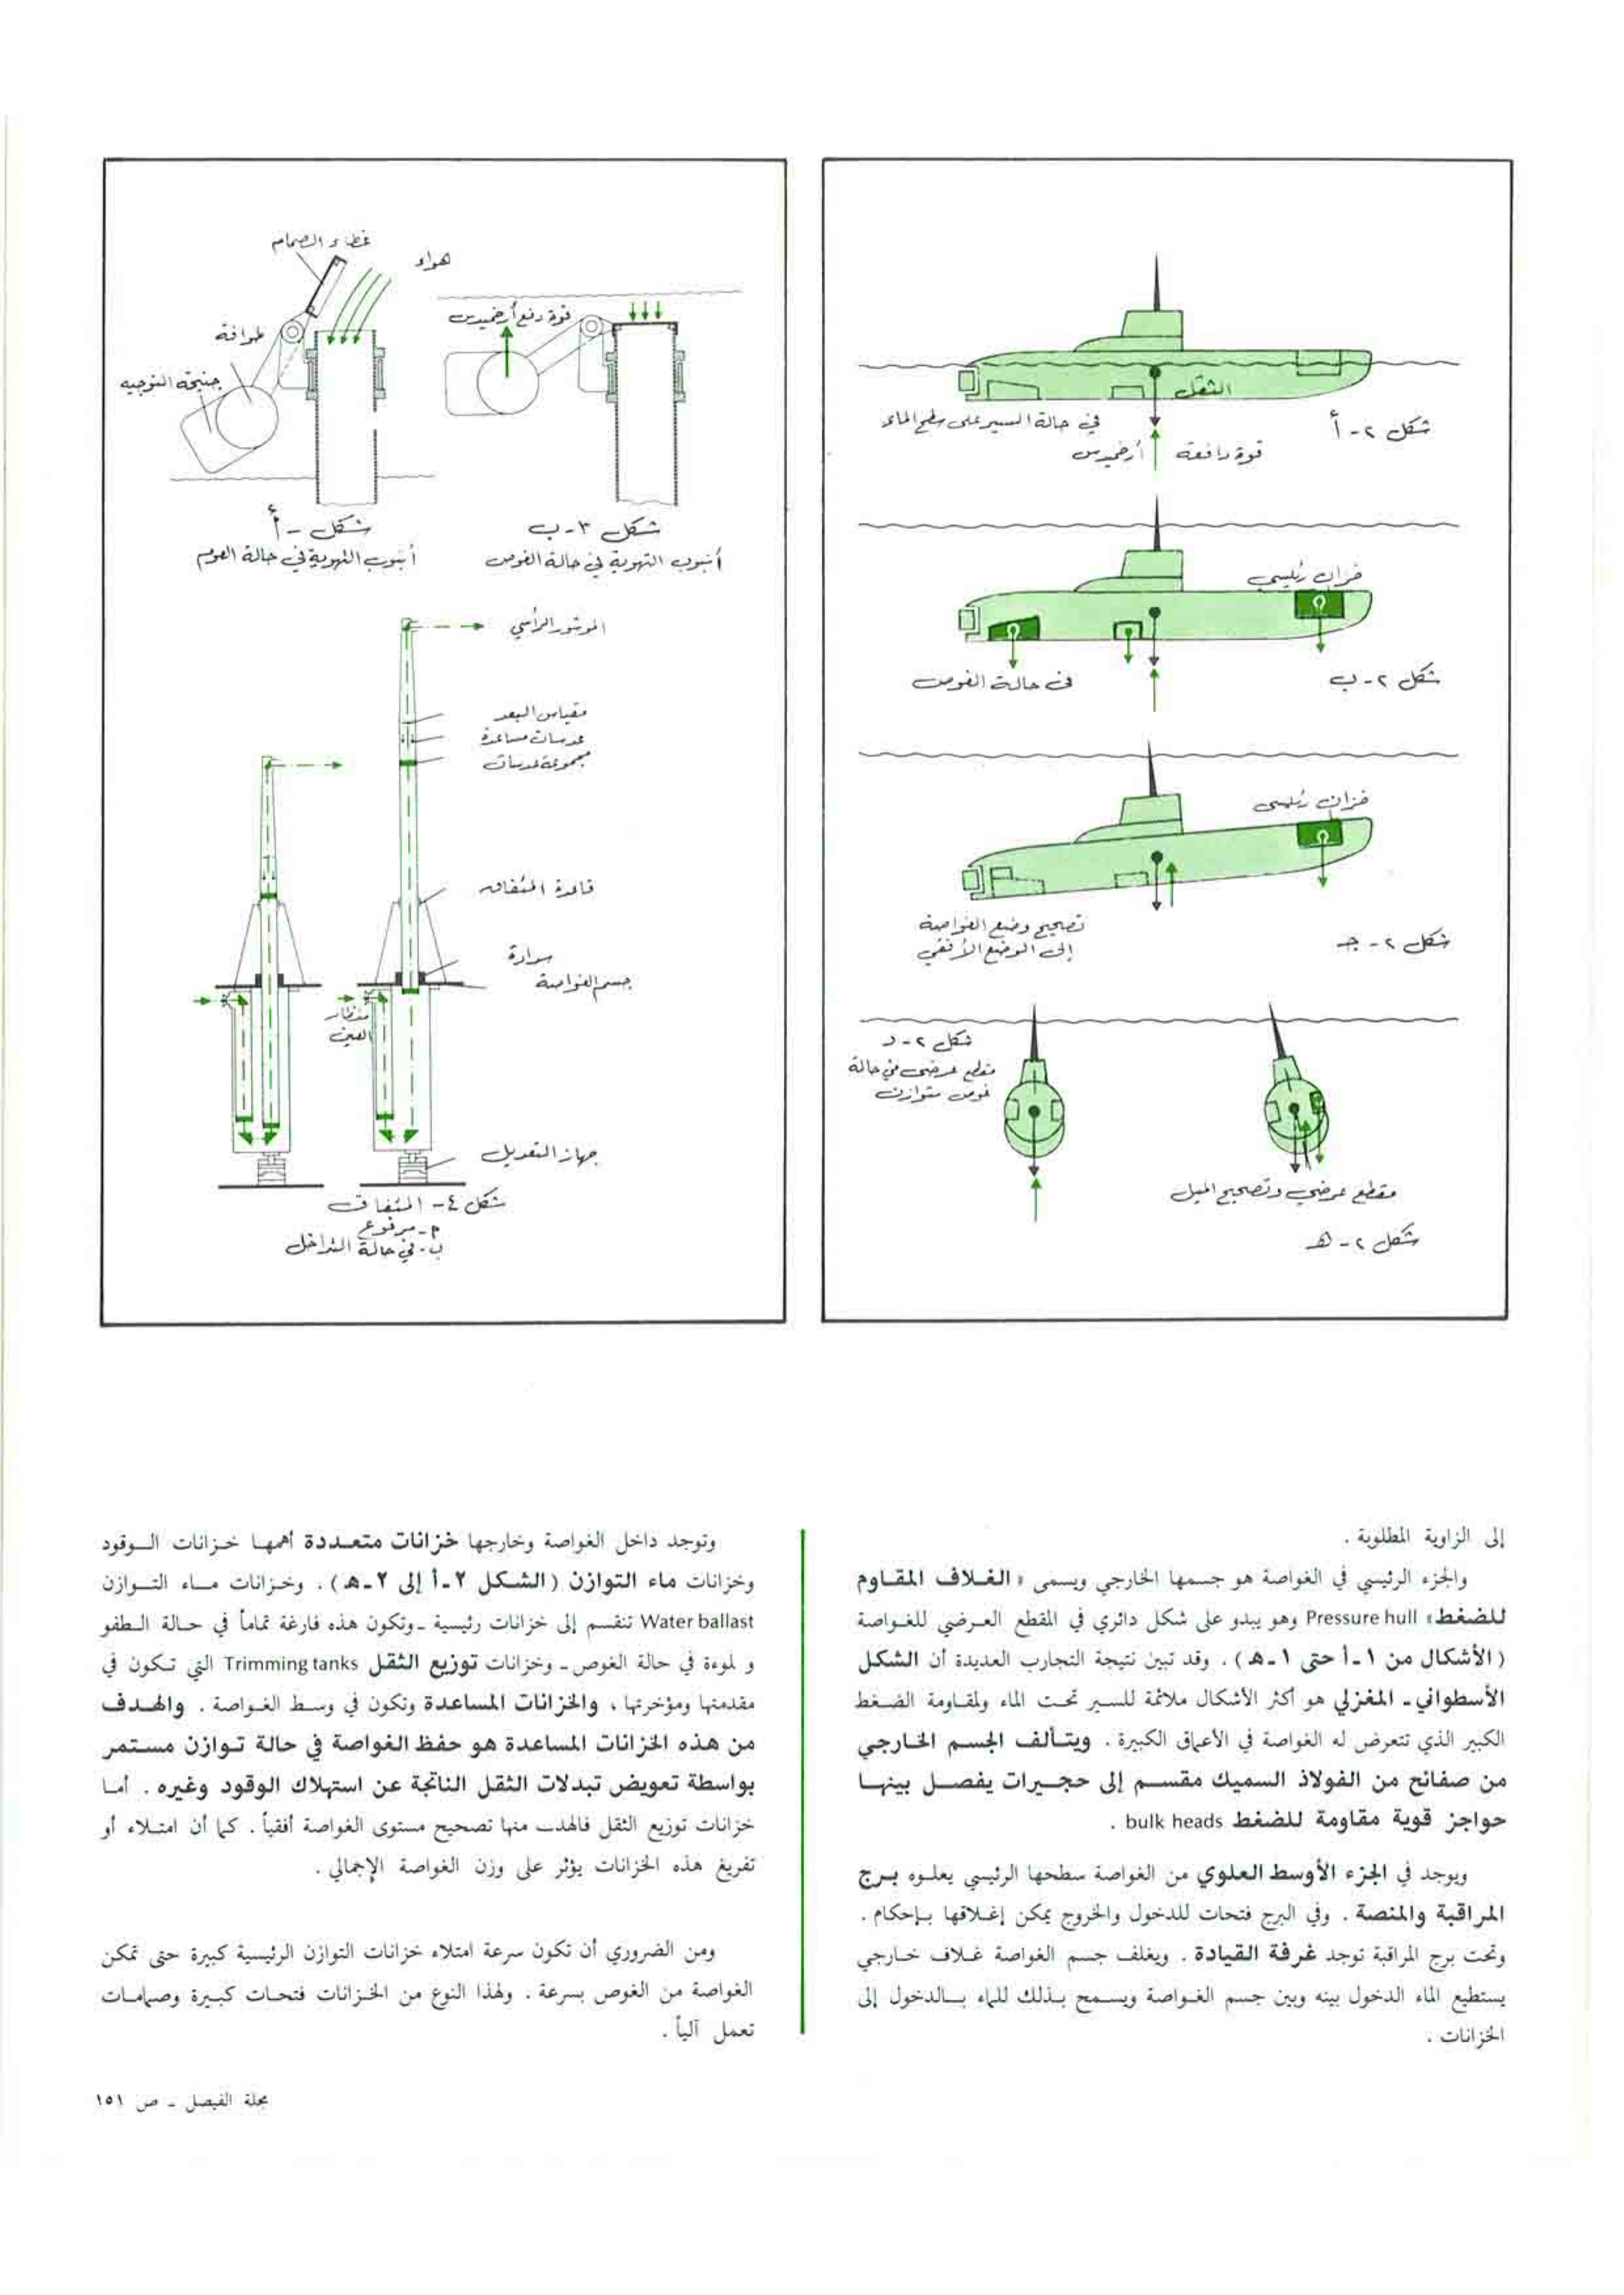 شكل ٢ - أ
الثقل
في حالة السير على سطح الماء
قوة دافعة أرخميدس
خزان رئيسي
شكل ٢ - ب
في حالة الغوص
خزان رئيسي
تصحيح وضع الغواصة
إلى الوضع الأفقي
شكل ٢ - جـ
شكل ٢ - د
مقطع عرضي في حالة
غوص متوازن
مقطع عرضي وتصحيح الميل
شكل ٢ - هـ
غطاء الصمام
هواء
قوة دفع أرخميدس
طوافة
جنيحة التوجيه
شكل ٣ - ب
أنبوب التهوية في حالة الغوص
شكل - أ
أنبوب التهوية في حالة العوم
الموشور الرأسي
مقياس البعد
عدسات مساعدة
مجموعة عدسات
قاعدة المئفاق
سوارة
جسم الغواصة
منظار
العين
جهاز التعديل
شكل ٤ - المئفاق
أ - مرفوع
ب - في حالة التداخل
إلى الزاوية المطلوبة .
والجزء الرئيسي في الغواصة هو جسمها الخارجي ويسمى « الغلاف المقاوم
للضغط » Pressure hull وهو يبدو على شكل دائري في المقطع العرضي للغواصة
( الأشكال من ١ـ أ حتى ١ـ هـ ) . وقد تبين نتيجة التجارب العديدة أن الشكل
الأسطواني ـ المغزلي هو أكثر الأشكال ملائمة للسير تحت الماء ولمقاومة الضغط
الكبير الذي تتعرض له الغواصة في الأعماق الكبيرة . ويتألف الجسم الخارجي
من صفائح من الفولاذ السميك مقسم إلى حجيرات يفصل بينها
حواجز قوية مقاومة للضغط bulk heads .
ويوجد في الجزء الأوسط العلوي من الغواصة سطحها الرئيسي يعلوه برج
المراقبة والمنصة . وفي البرج فتحات للدخول والخروج يمكن إغلاقها بإحكام .
وتحت برج المراقبة توجد غرفة القيادة . ويغلف جسم الغواصة غلاف خارجي
يستطيع الماء الدخول بينه وبين جسم الغواصة ويسمح بذلك للماء بالدخول إلى
الخزانات .
وتوجد داخل الغواصة وخارجها خزانات متعددة أهمها خزانات الوقود
وخزانات ماء التوازن ( الشكل ٢ـ أ إلى ٢ـ هـ ) . وخزانات ماء التوازن
Water ballast تنقسم إلى خزانات رئيسية ـ وتكون هذه فارغة تماماً في حالة الطفو
و لموءة في حالة الغوص ـ وخزانات توزيع الثقل Trimming tanks التي تكون في
مقدمتها ومؤخرتها ، والخزانات المساعدة وتكون في وسط الغواصة . والهدف
من هذه الخزانات المساعدة هو حفظ الغواصة في حالة توازن مستمر
بواسطة تعويض تبدلات الثقل الناتجة عن استهلاك الوقود وغيره . أما
خزانات توزيع الثقل فالهدف منها تصحيح مستوى الغواصة أفقياً . كما أن امتلاء أو
تفريغ هذه الخزانات يؤثر على وزن الغواصة الإجمالي .
ومن الضروري أن تكون سرعة امتلاء خزانات التوازن الرئيسية كبيرة حتى تمكن
الغواصة من الغوص بسرعة . ولهذا النوع من الخزانات فتحات كبيرة وصمامات
تعمل آلياً .
مجلة الفيصل ـ ص ١٥١